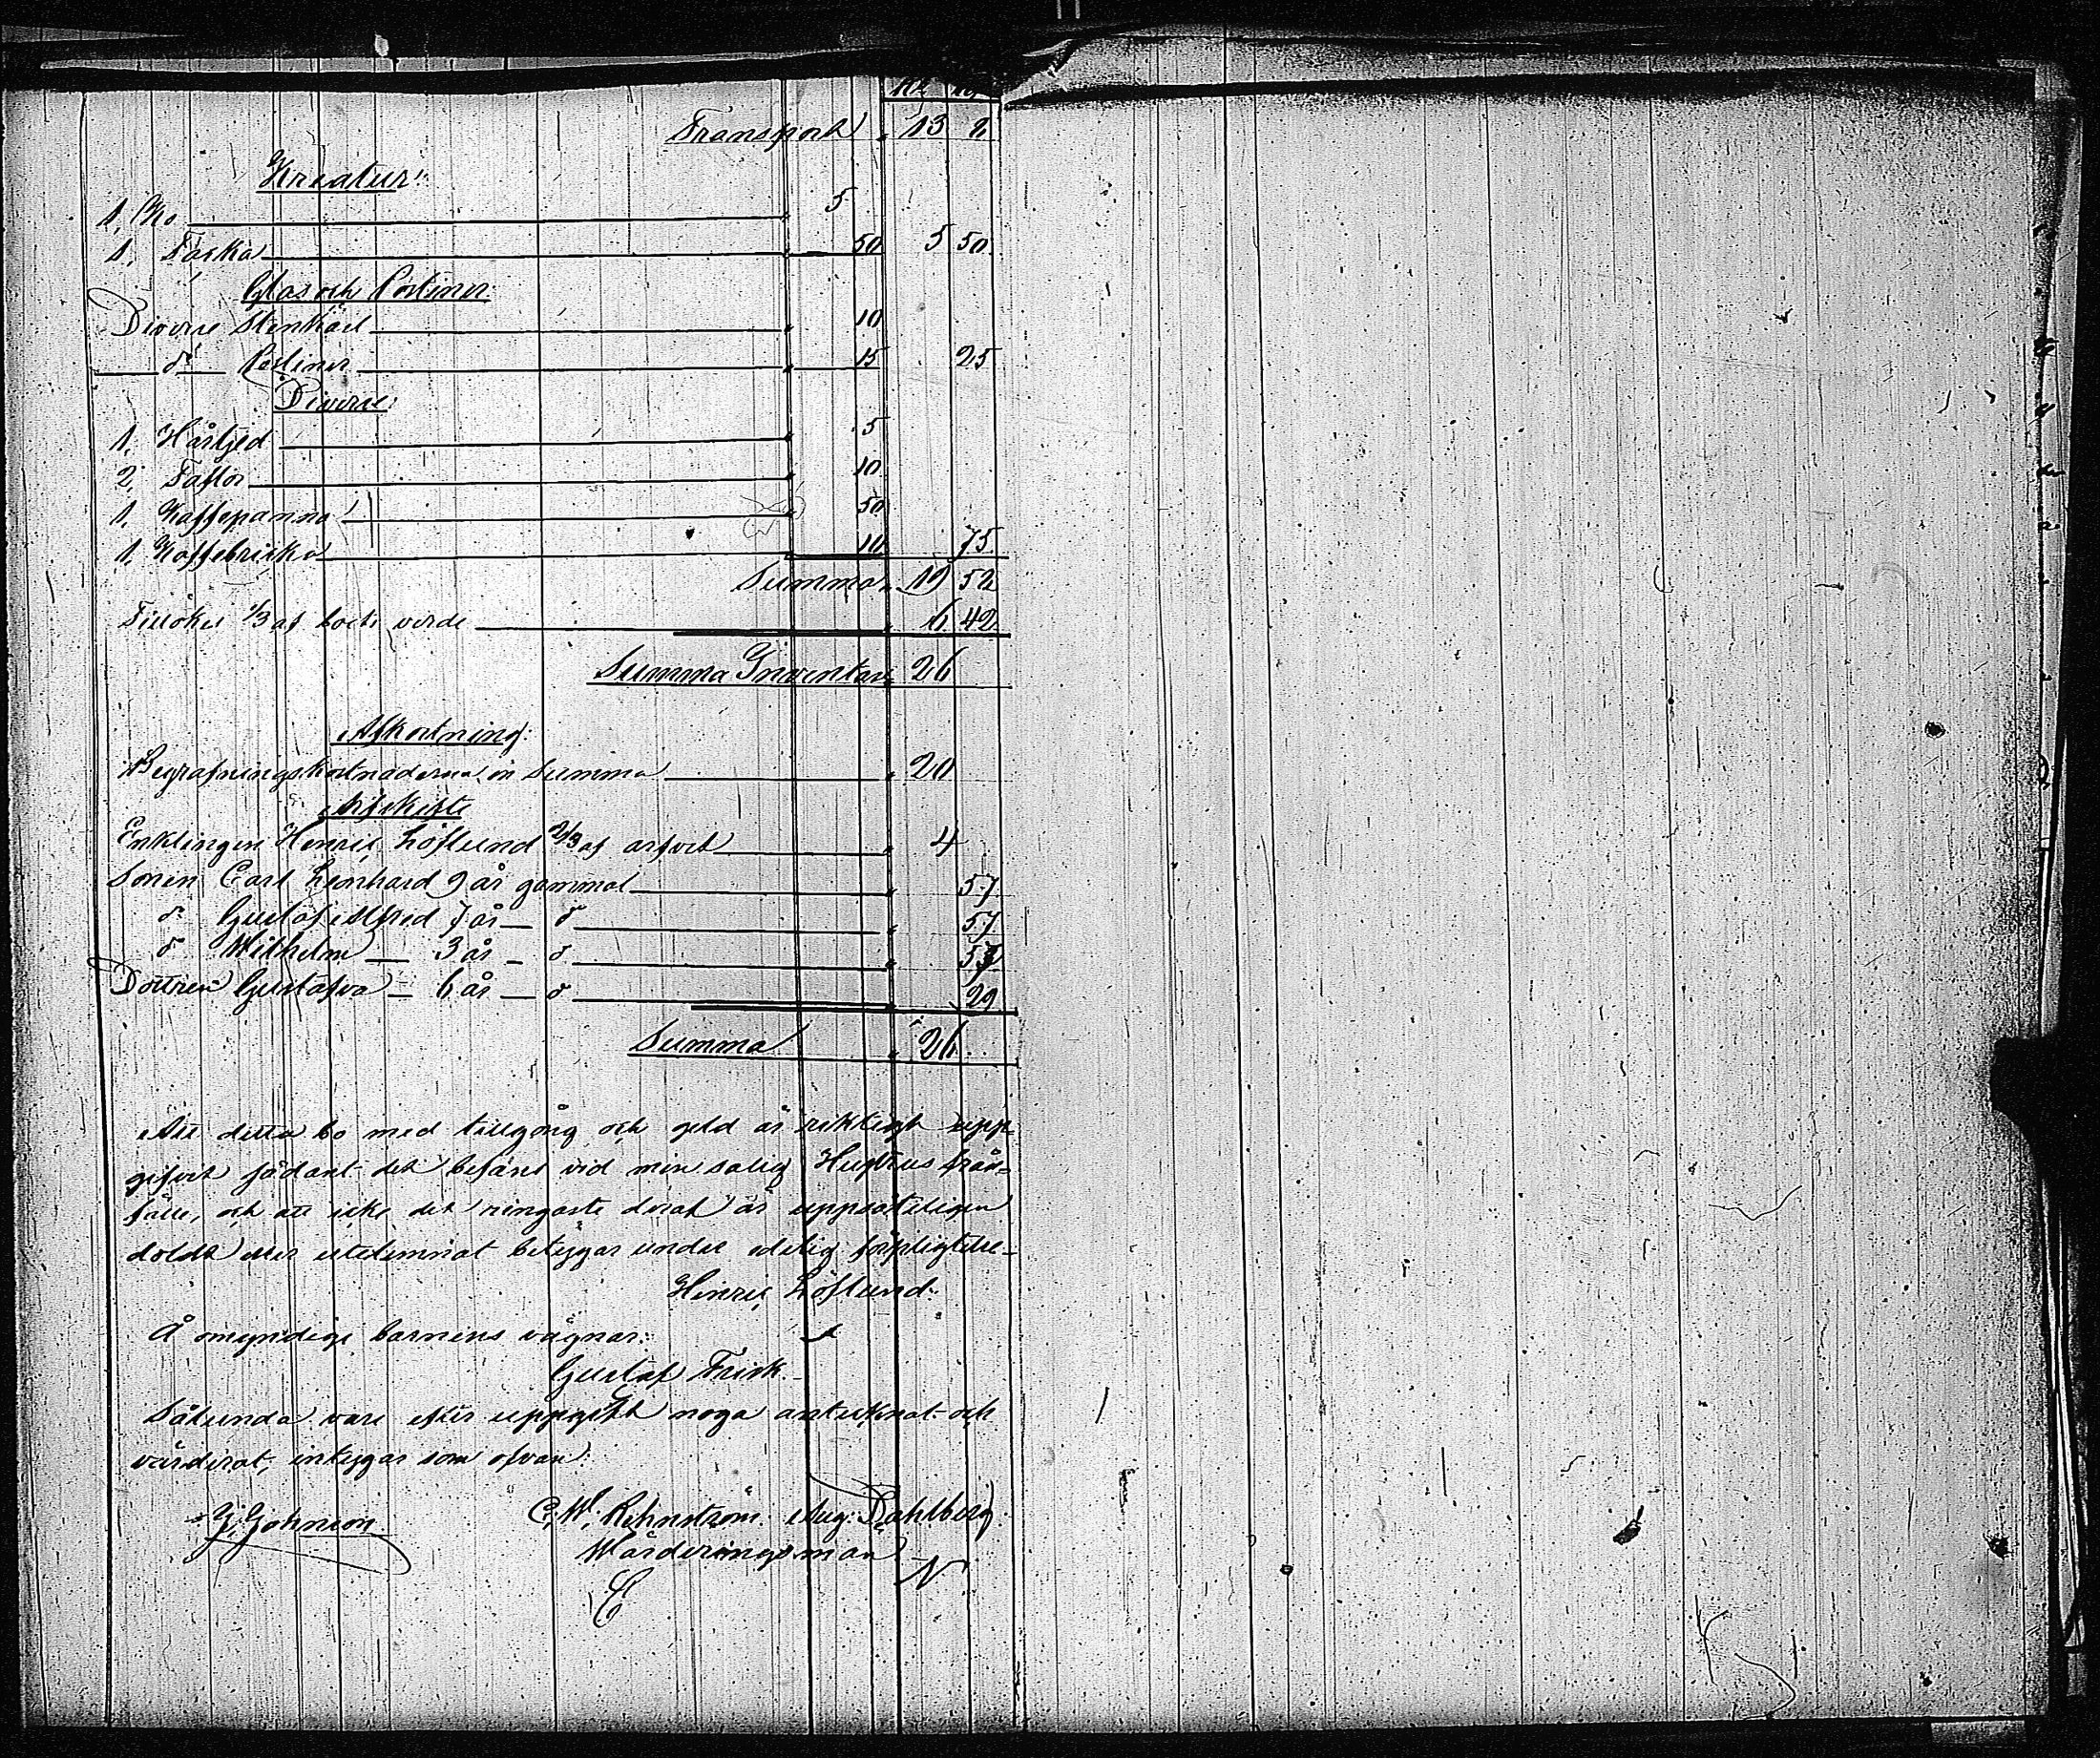 Transport " 13 2
Kreatur:
1, Ko " 5
1, Tacka " 50 5 50
Glas och Porsliner:
Diverse Stenkäril " 10
do Porsliner " 15 25
Diverse:
1, Hårtjed " 5
2, Taflor " 10
1, Kaffepanna " 50
1, Kaffebricka 10 75
Summa " 19 52
Tillökes 1/3 af boets verde " 6 42
Summa Inventari " 26
Afkortning:
Begrafningskostnaderna in Summa " 20
Arfskifte
Enklingen Henric Löflund 2/3 af arfvet " 4
Sonen Carl Leonhard 9 år gammal " 57
do Gustaf Alfred 7 år do " 57
do Wilhelm 3 år do " 57
Dottren Gustafva 6 år do 29
Summa " 26
Att detta bo med tillgång och geld är riktigt upp-
gifvet sådant det befans vid min salig Hustrus från-
fälle, och att icke det ringaste deraf är uppsåteligen
doldt eller utelemnat betygar under edelig förpligtelse
Hinric Löflund.
Å omyndige barnens vägnar:
Gustaf Frisk.
Sålunda vara efter uppgift noga antecknat och
värderat, intygar som ofvan:
J. Johnson
C. W. Rehnström. Aug: Dahlberg.
Wärderingsman